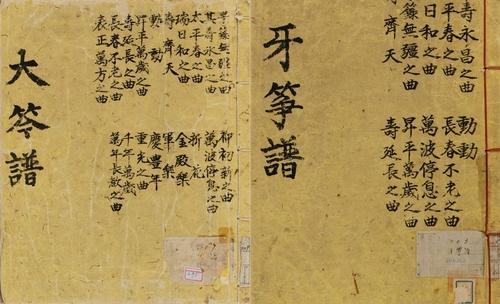 籙無疆之曲
其壽永昌之曲
太平春之曲
瑞日和之曲
壽齊天
動動
昇平萬歲之曲
壽延長之曲
長春不老之曲
表正萬方之曲
柳初新之曲
萬波停息之曲
折花
金殿樂
軍樂
慶豊年
重光之曲
千年萬歲
萬年長歡之曲
大笒譜
壽永昌之曲
平春之曲
日和之曲
齊天
動動
長春不老之曲
萬波停息之曲
昇平萬歲之曲
壽延長之曲
牙箏譜